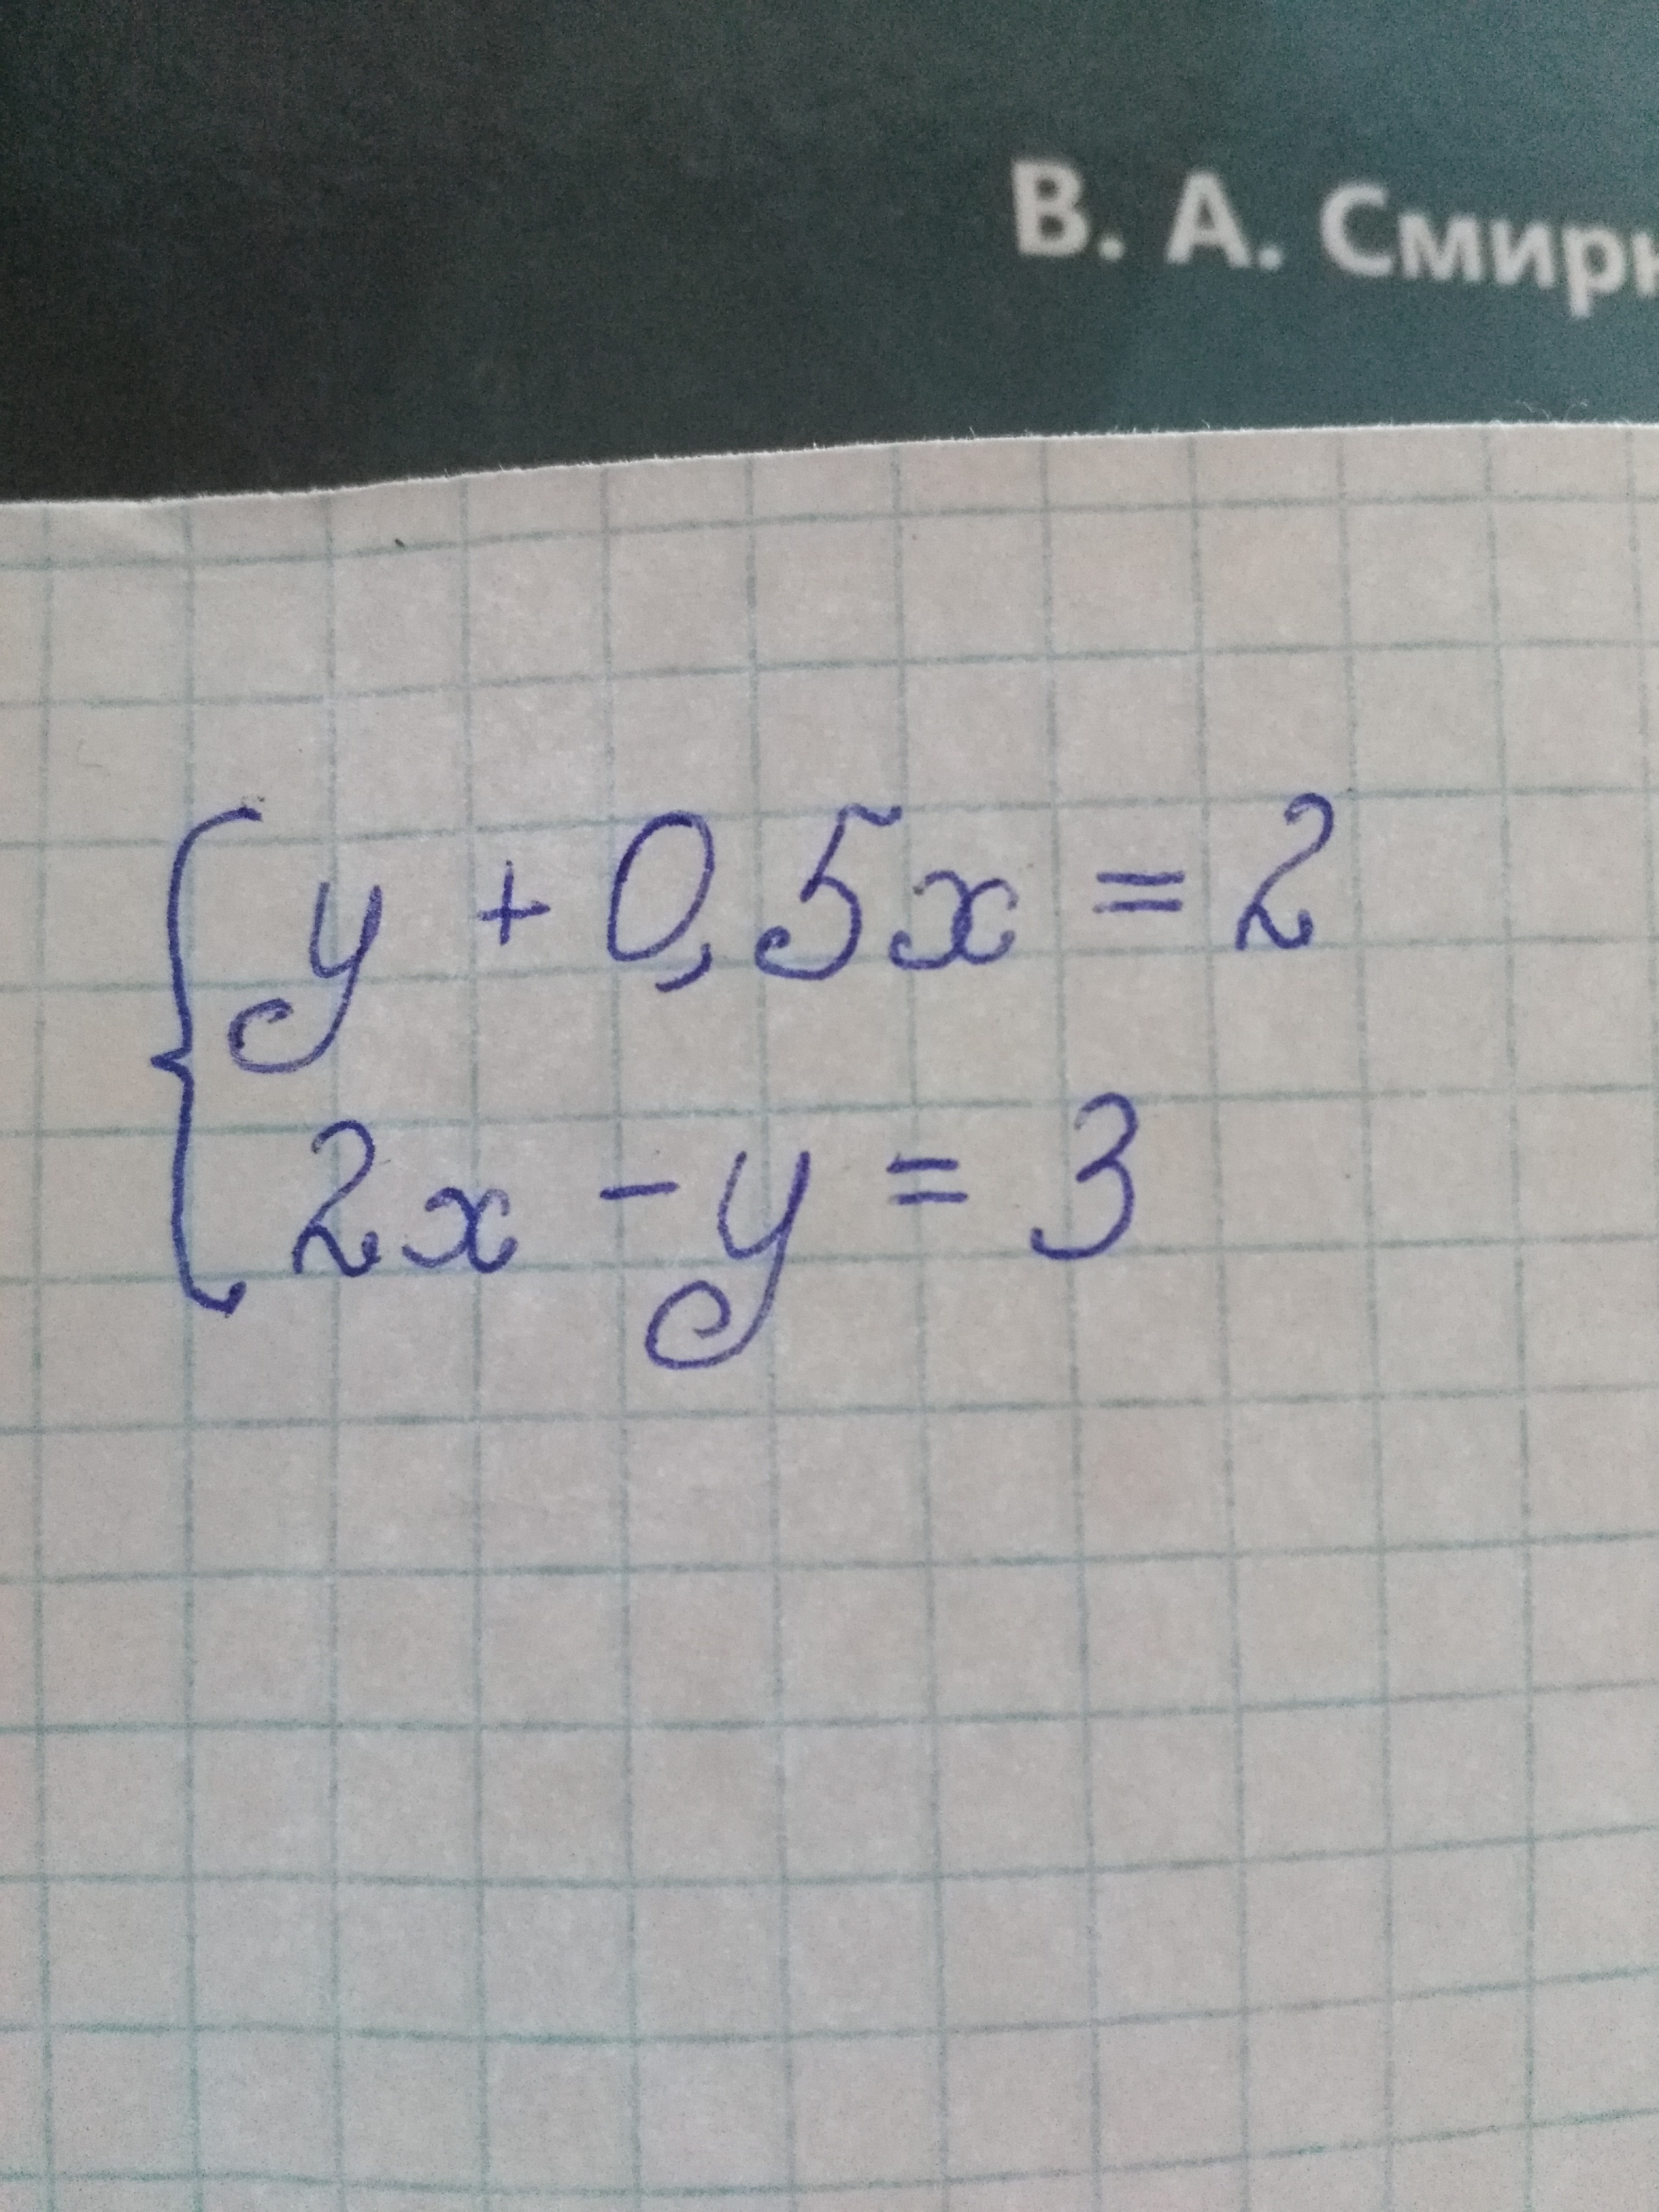 В. А. Смирн
y + 0,5x = 2
2x - y = 3